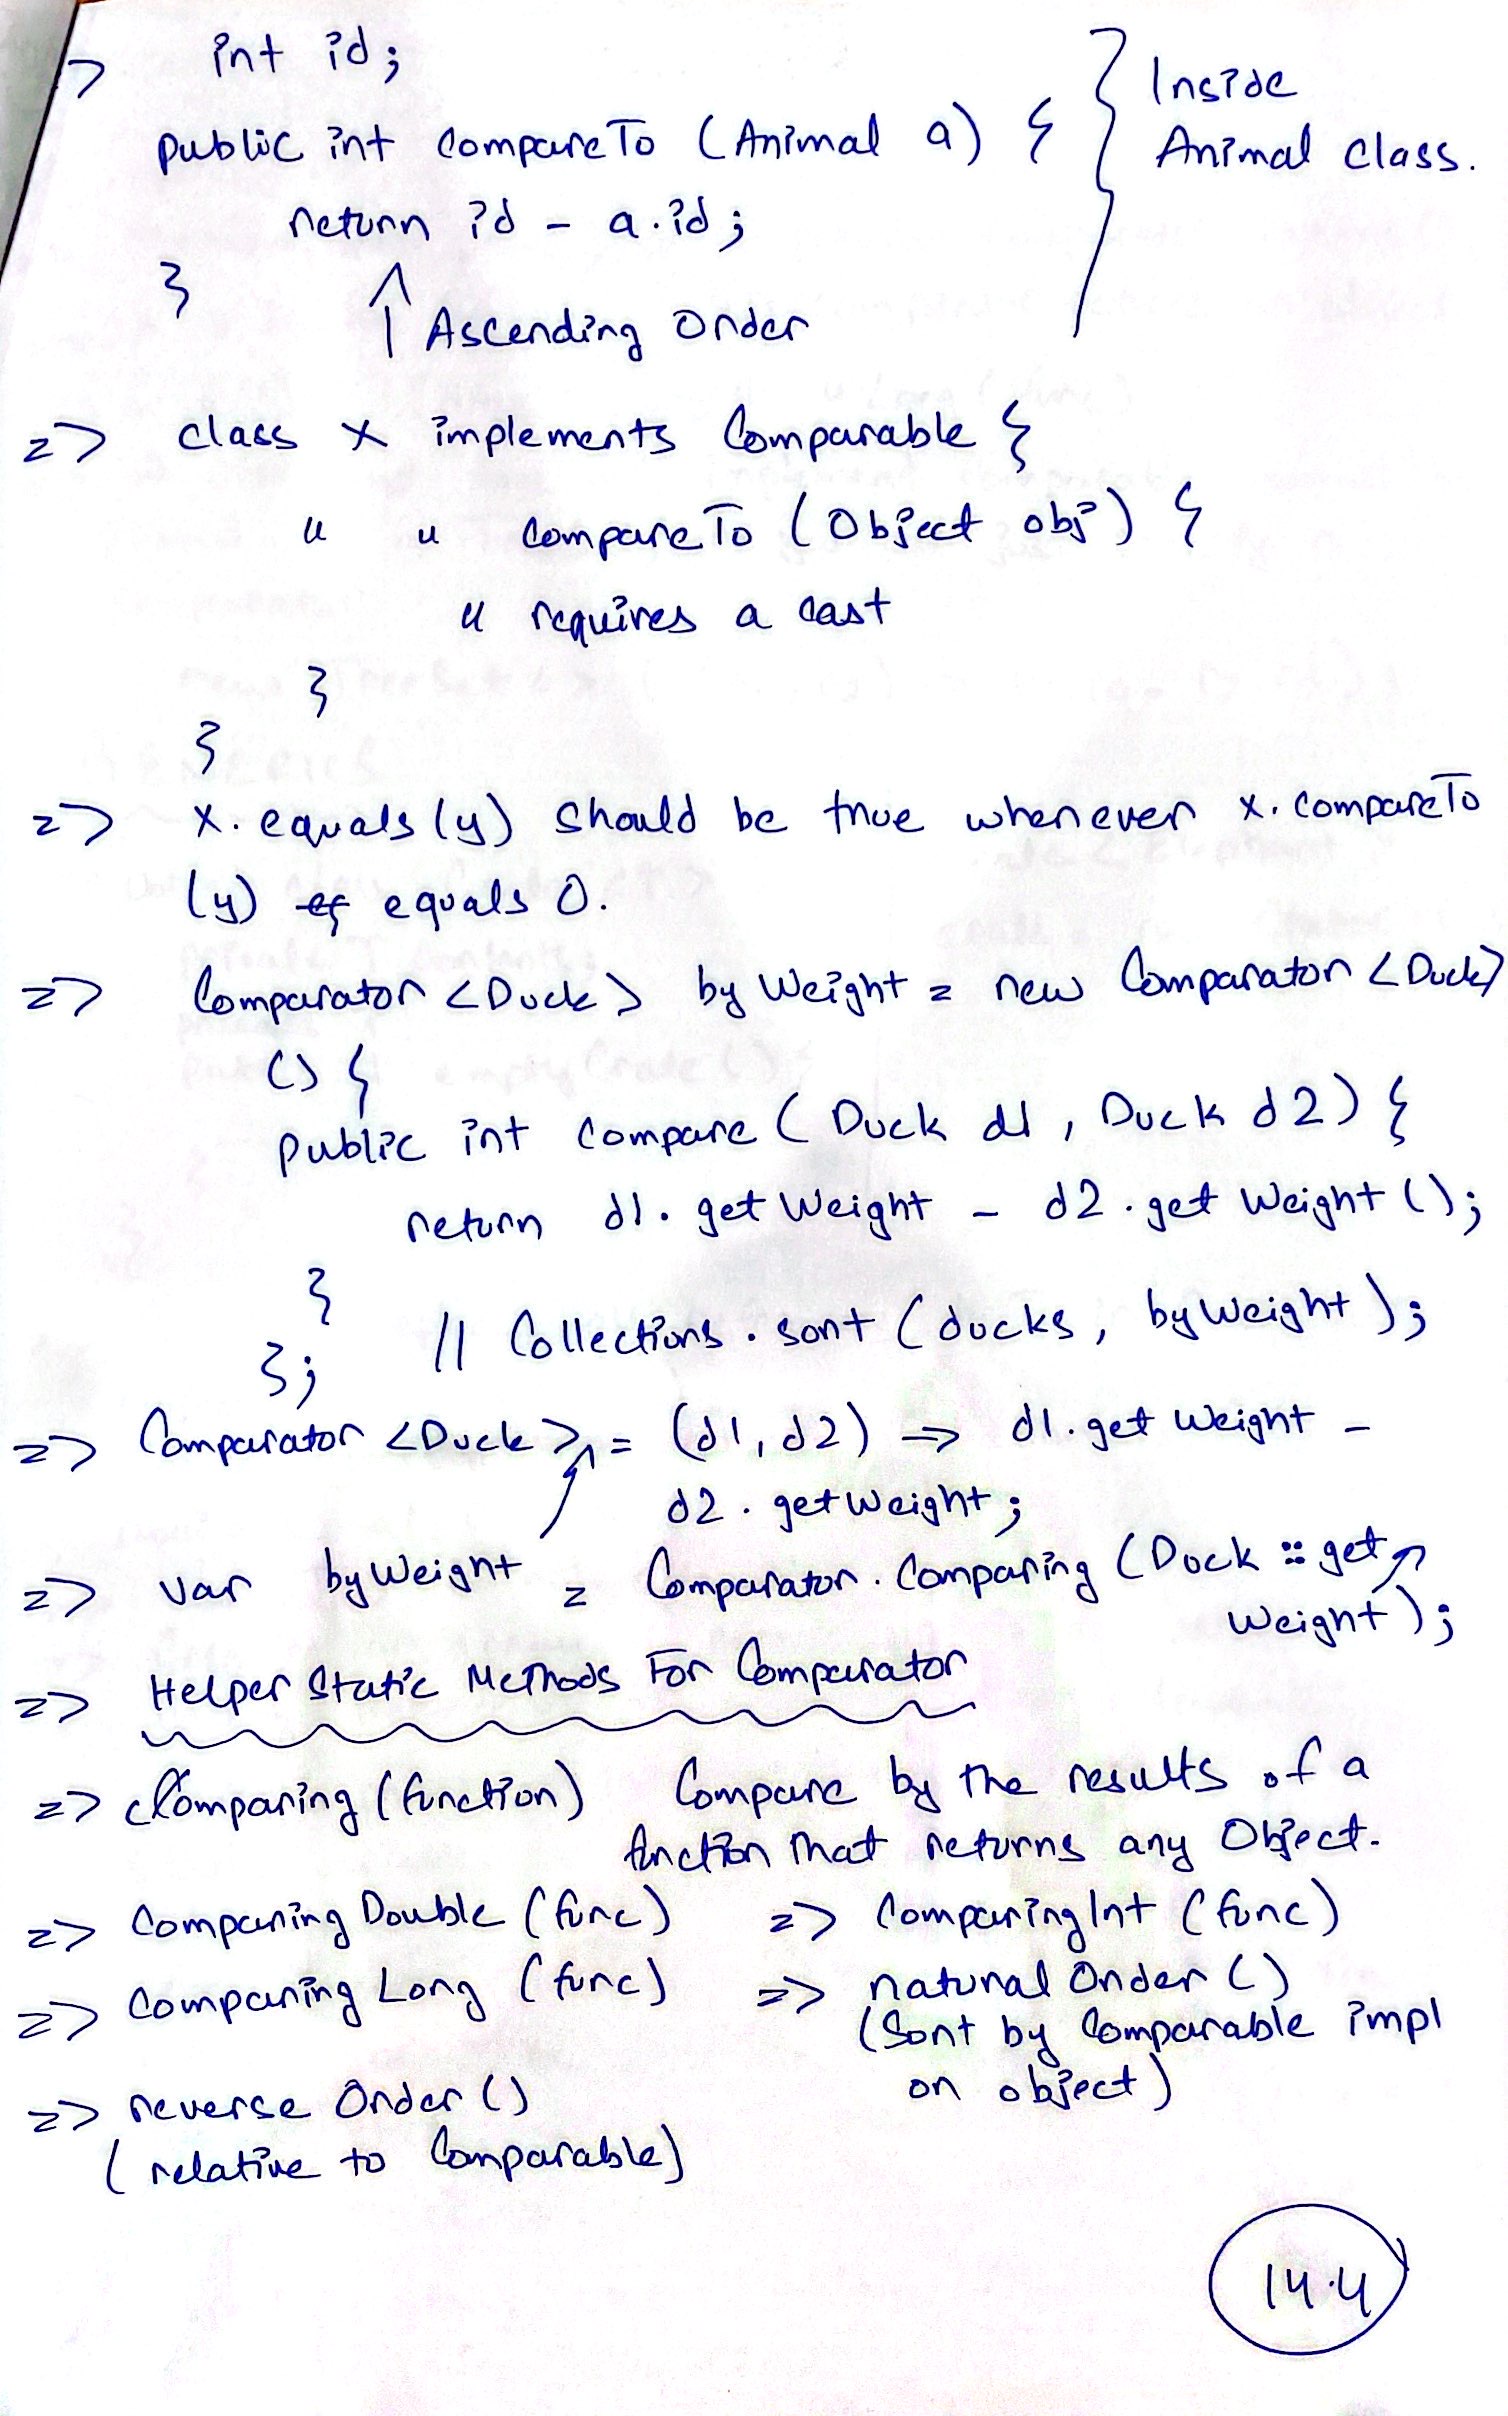 => int id;
public int compareTo (Animal a) { } Inside
Animal class.
return id - a.id;
}
↑ Ascending Order
=> class X implements Comparable {
" " compareTo (Object obj) {
" requires a cast
}
}
=> x.equals(y) should be true whenever x.compareTo
(y) equals 0.
=> Comparator <Duck> byWeight = new Comparator <Duck>
() {
public int compare (Duck d1, Duck d2) {
return d1.getWeight - d2.getWeight();
}
}; // Collections.sort (ducks, byWeight);
=> Comparator <Duck> = (d1, d2) => d1.getWeight -
d2.getWeight;
=> var byWeight = Comparator.Comparing (Duck::get
Weight);
=> Helper Static Methods For Comparator
=> Comparing (function) Compare by the results of a
function that returns any Object.
=> Comparing Double (func) => ComparingInt (func)
=> Comparing Long (func) => natural Order ()
(Sort by Comparable impl
on object)
=> reverse Order ()
(relative to Comparable)
14.4